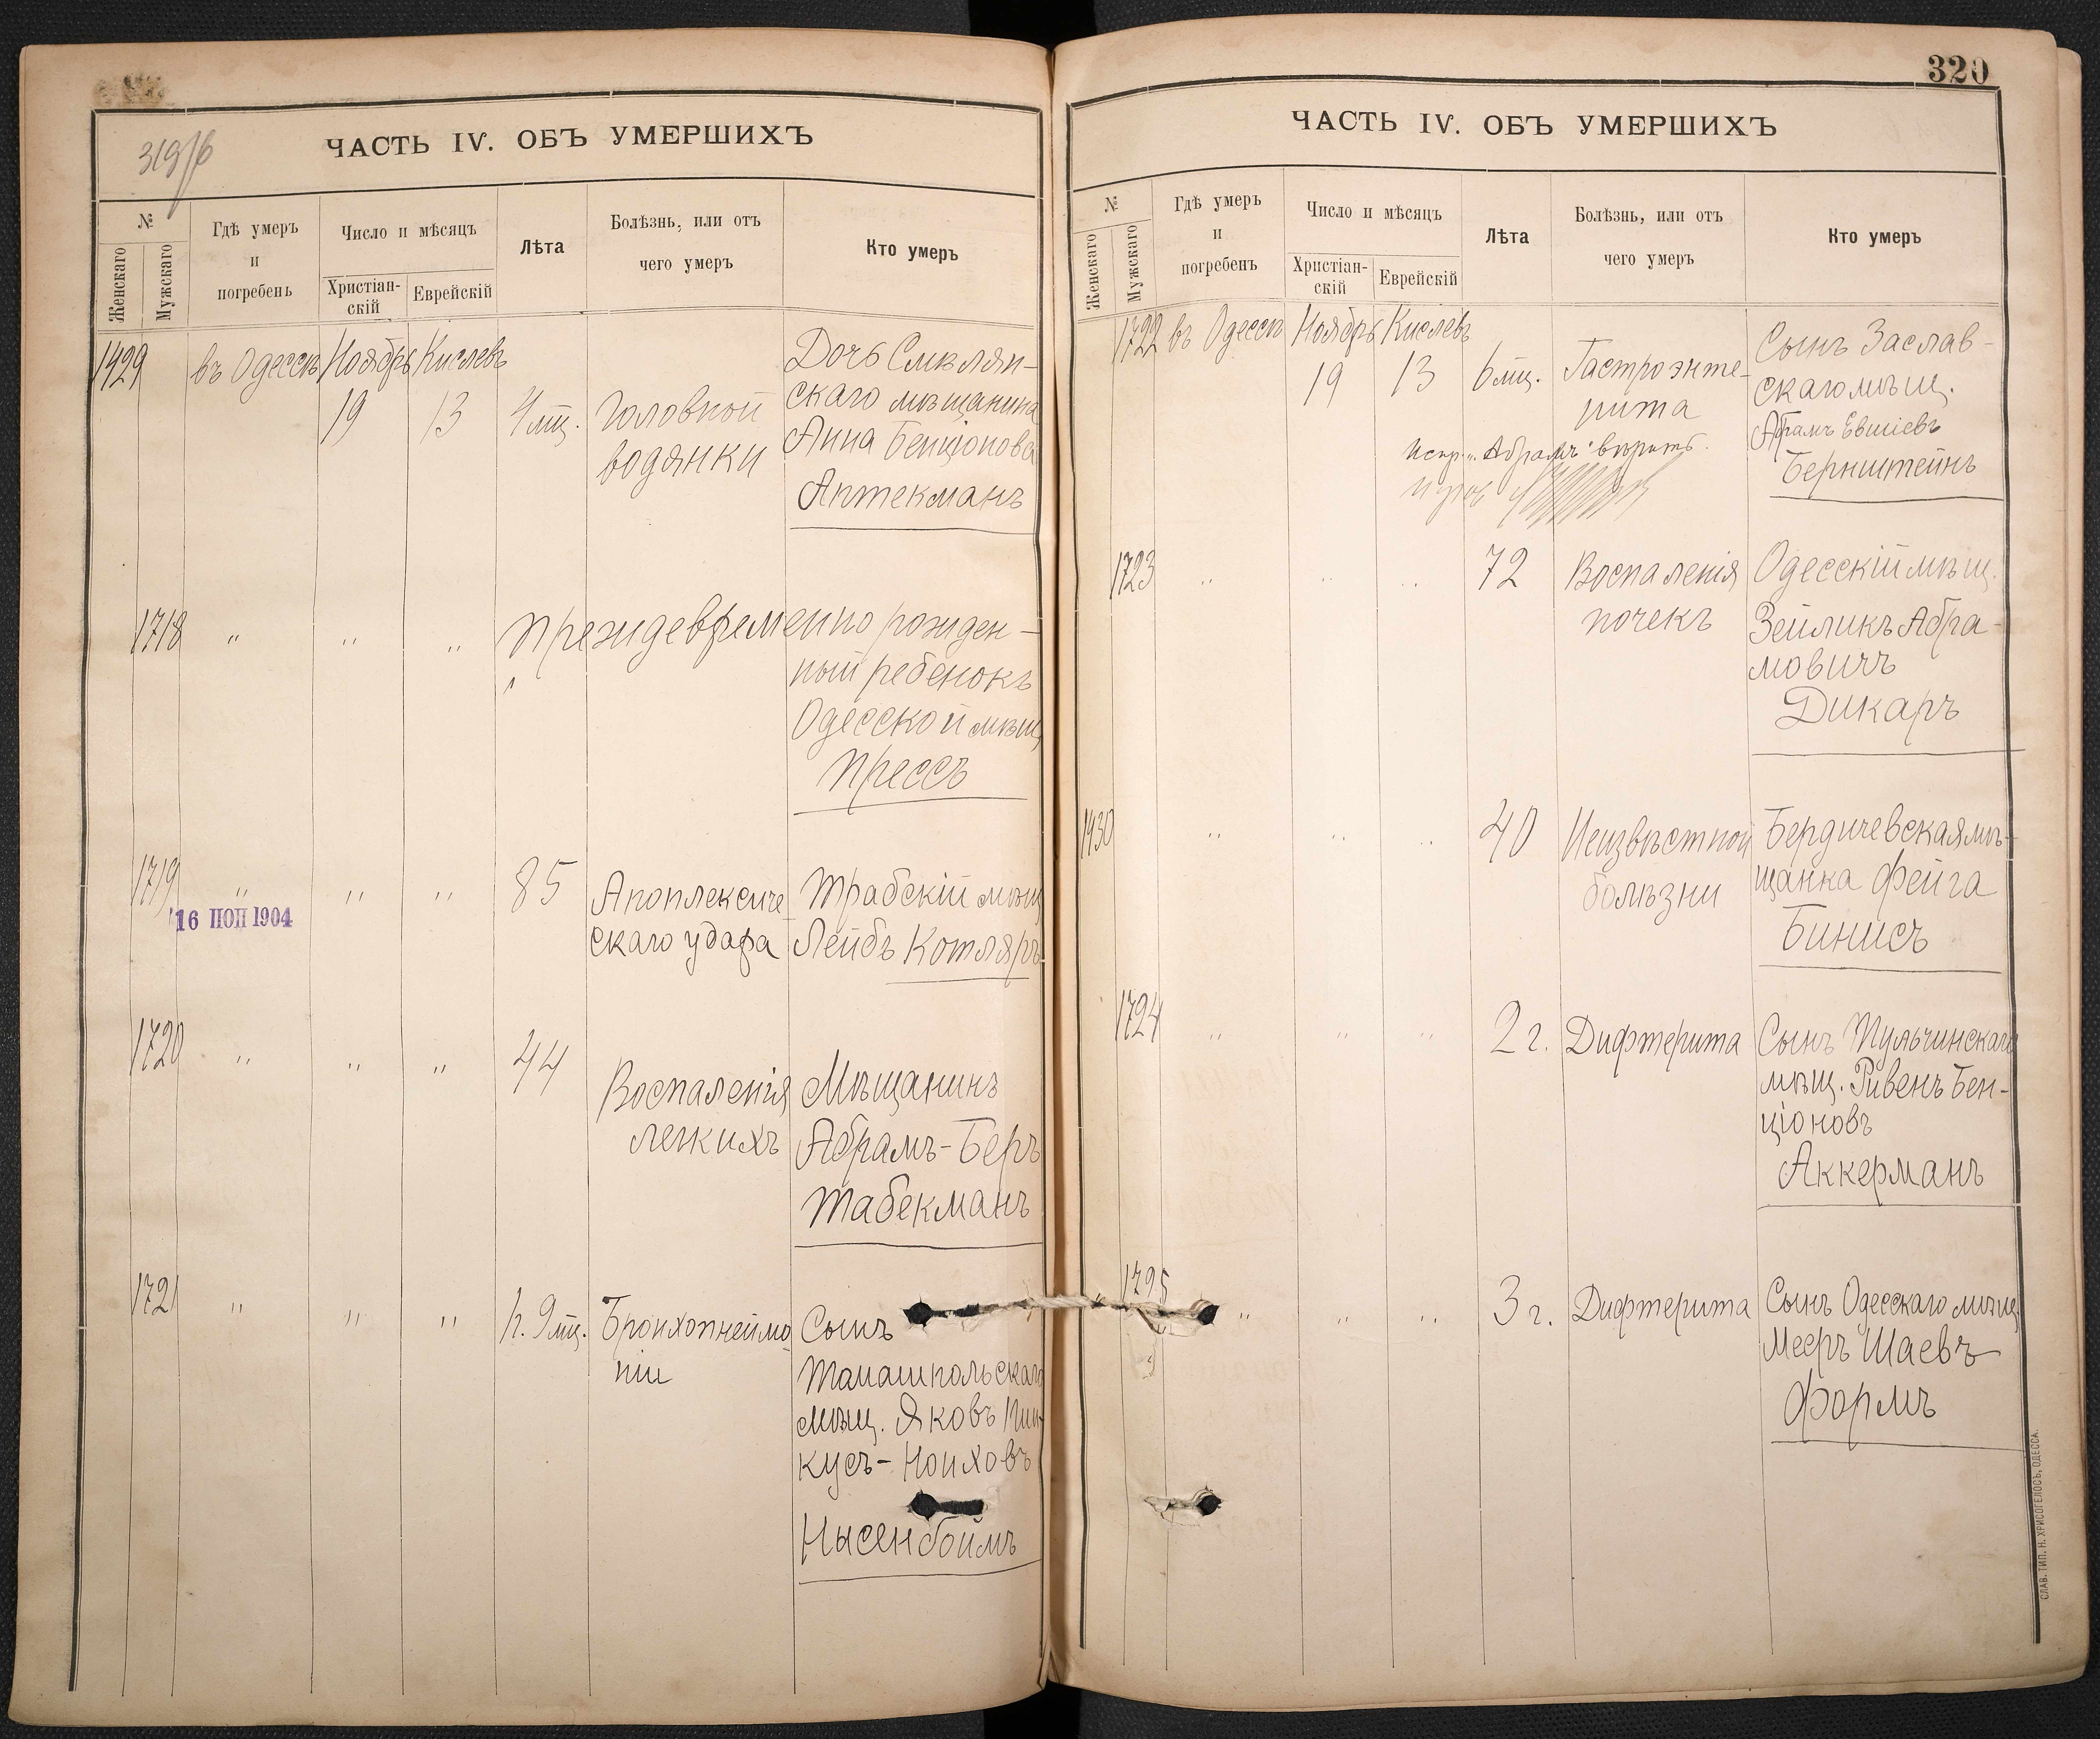 319/б
ЧАСТЬ IV. ОБЪ УМЕРШИХЪ
№
Женскаго
Мужскаго
Гдѣ умеръ
и
погребенъ
Число и мѣсяцъ
Христіан-
скій
Еврейскій
Лѣта
Болѣзнь, или отъ
чего умеръ
Кто умеръ
1429 въ Одессѣ Ноябрь Кислевъ
19 13 4 мц. Головной
водянки
Дочь Смѣлян-
скаго мѣщанина
Анна Бенціонова
Аптекманъ
1718 " " " Преждевременно рожден-
ный ребенокъ
Одесской мѣщ.
Прессъ
1719 " " " 85 Апоплексиче
скаго удара
Трабскій мѣщ
Лейбъ Котляръ
16 1904
1720 " " " 44 Воспаленія
легкихъ
Мѣщанинъ
Абрамъ-Беръ
Табекманъ
1721 " " " 1 г. 9 мц. Бронхопнеймо
ніи
Сынъ
Томашпольскаго
мѣщ. Яковъ Пин-
кусъ-Ноиховъ
Нысенбоймъ
320
ЧАСТЬ IV. ОБЪ УМЕРШИХЪ
№
Женскаго
Мужскаго
Гдѣ умеръ
и
погребенъ
Число и мѣсяцъ
Христіан-
скій
Еврейскій
Лѣта
Болѣзнь, или отъ
чего умеръ
Кто умеръ
1722 въ Одессѣ Ноябрь Кислевъ
19 13 6 мц. Гастроэнте-
рита
Сынъ Заслав-
скаго мѣщ.
Абрамъ Евшіевъ
Бернштейнъ
испр. „Абрамъ" вѣрить.
1723 " " " 72 Воспаленія
почекъ
Одесскій мѣщ.
Зейликъ Абра-
мовичъ
Дикаръ
1430 " " " 40 Неизвѣстной
болѣзни
Бердичевская мѣ-
щанка Фейга
Бинисъ
1724 " " " 2 г. Дифтерита
Сынъ Тульчинскаго
мѣщ. Ривенъ Бен-
ціоновъ
Аккерманъ
1725 " " " 3 г. Дифтерита
Сынъ Одесскаго мѣщ.
Мееръ Шаевъ
Формъ
СЛАВ. ТИП. Н. ХРИСОГЕЛОСЪ, ОДЕССА.